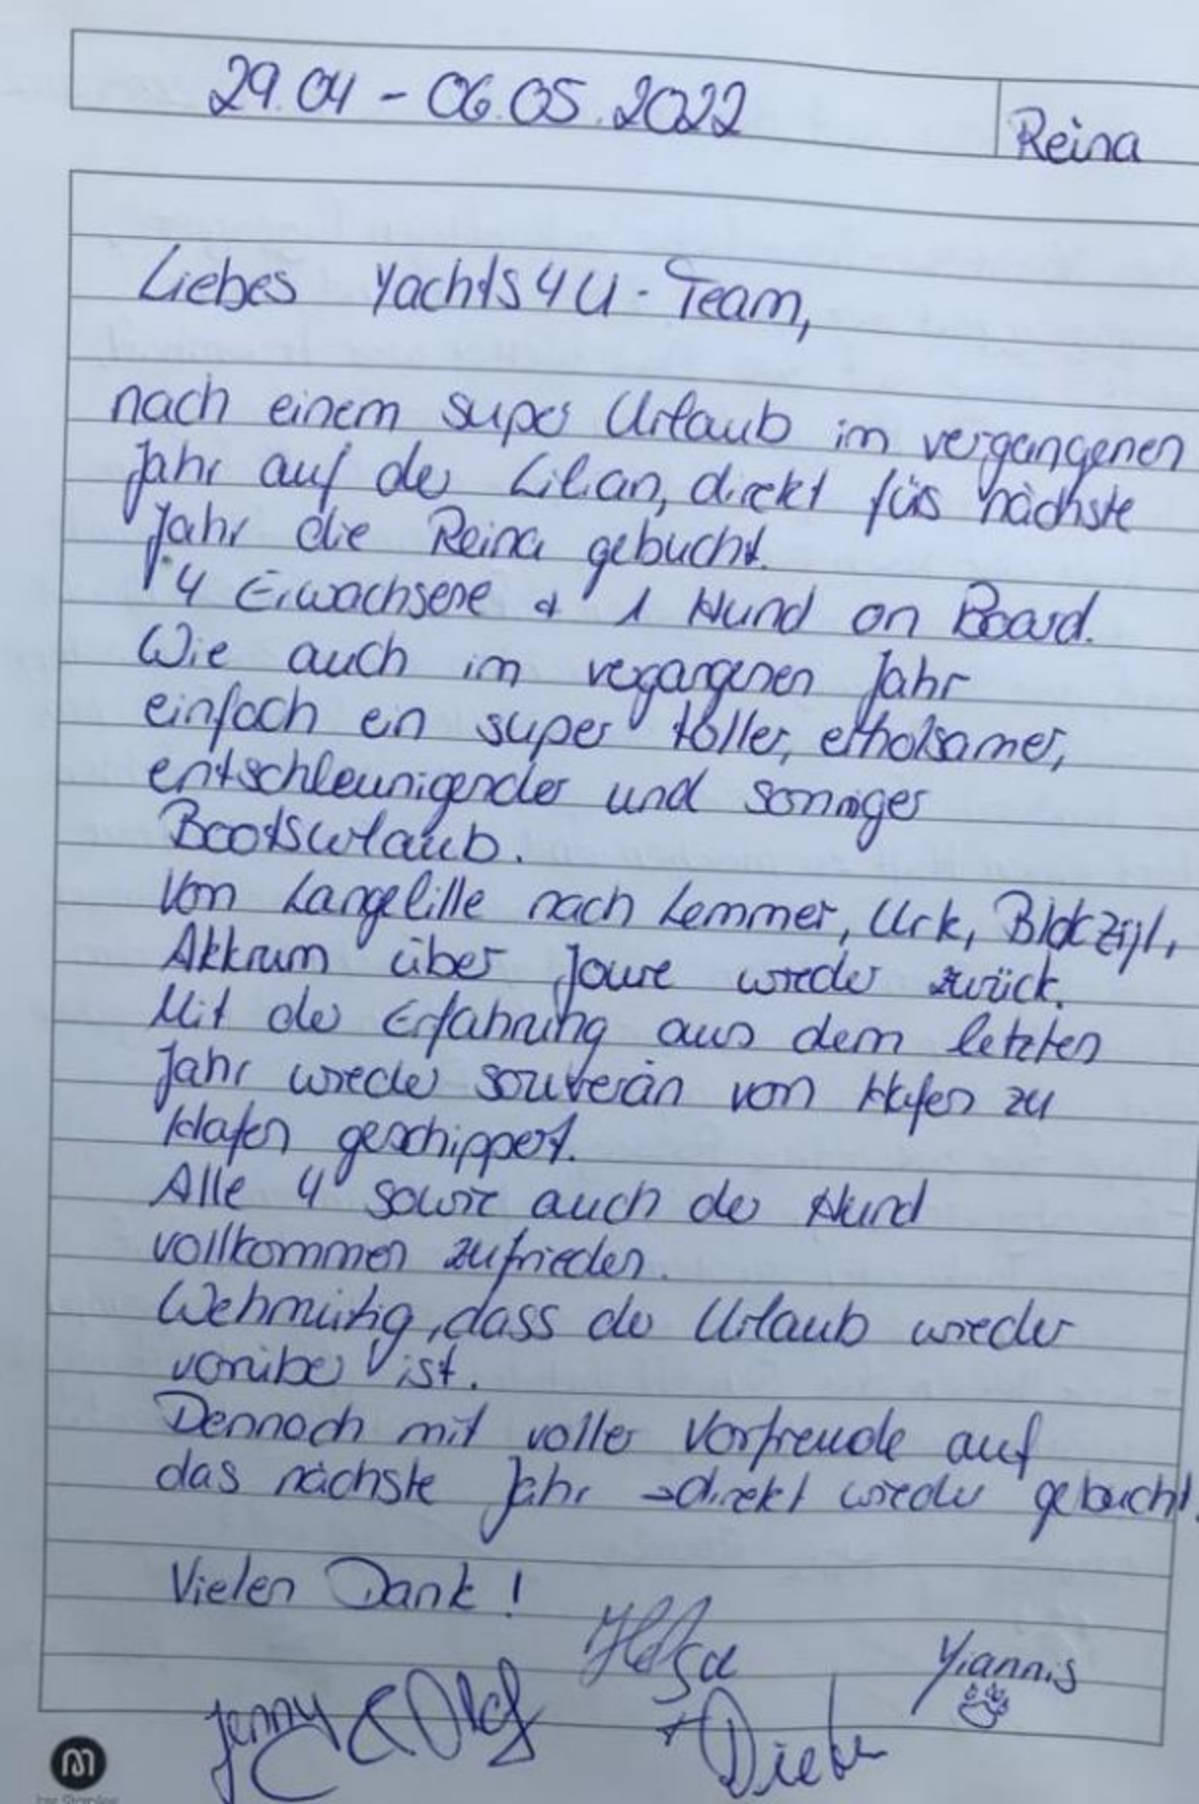 29.04 - 06.05.2022
Reina
Liebes Yachts4U-Team,
nach einem super Urlaub im vergangenen
Jahr auf der Lilian, direkt fürs nächste
Jahr die Reina gebucht.
4 Erwachsene & 1 Hund on Board.
Wie auch im vergangenen Jahr
einfach ein super toller, erholsamer,
entschleunigender und sonniger
Bootsurlaub.
Von Langelille nach Lemmer, Urk, Blokzijl,
Akkrum über Joure wieder zurück.
Mit der Erfahrung aus dem letzten
Jahr wieder souverän von Hafen zu
Hafen geschippert.
Alle 4 sowie auch der Hund
vollkommen zufrieden.
Wehmütig, dass der Urlaub wieder
vorüber ist.
Dennoch mit voller Vorfreude auf
das nächste Jahr → direkt wieder gebucht.
Vielen Dank!
Jenny & Olaf
Helga
+ Dieter
Yiannis